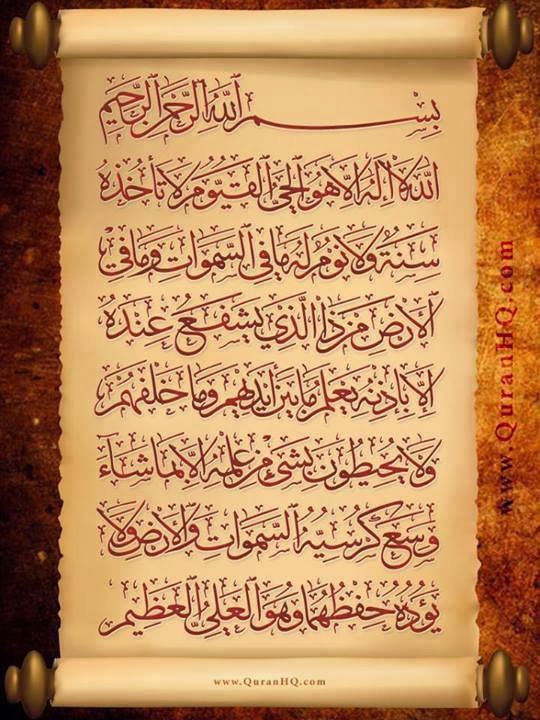 بِسْمِ اللَّهِ الرَّحْمٰنِ الرَّحِيمِ
اللَّهُ لَا إِلٰهَ إِلَّا هُوَ الْحَيُّ الْقَيُّومُ لَا تَأْخُذُهُ
سِنَةٌ وَلَا نَوْمٌ لَهُ مَا فِي السَّمٰوَاتِ وَمَا فِي
الْأَرْضِ مَنْ ذَا الَّذِي يَشْفَعُ عِنْدَهُ
إِلَّا بِإِذْنِهِ يَعْلَمُ مَا بَيْنَ أَيْدِيهِمْ وَمَا خَلْفَهُمْ
وَلَا يُحِيطُونَ بِشَيْءٍ مِنْ عِلْمِهِ إِلَّا بِمَا شَاءَ
وَسِعَ كُرْسِيُّهُ السَّمٰوَاتِ وَالْأَرْضَ وَلَا
يَؤُدُهُ حِفْظُهُمَا وَهُوَ الْعَلِيُّ الْعَظِيمُ
www.QuranHQ.com
www.QuranHQ.com